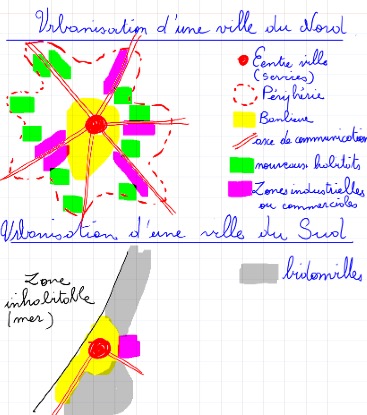 Urbanisation d'une ville du Nord
Centre ville
(services)
Périphérie
Banlieue
axe de communication
nouveaux habitats
Zones industrielles
ou commerciales
Urbanisation d'une ville du Sud
Zone
inhabitable
(mer)
bidonvilles